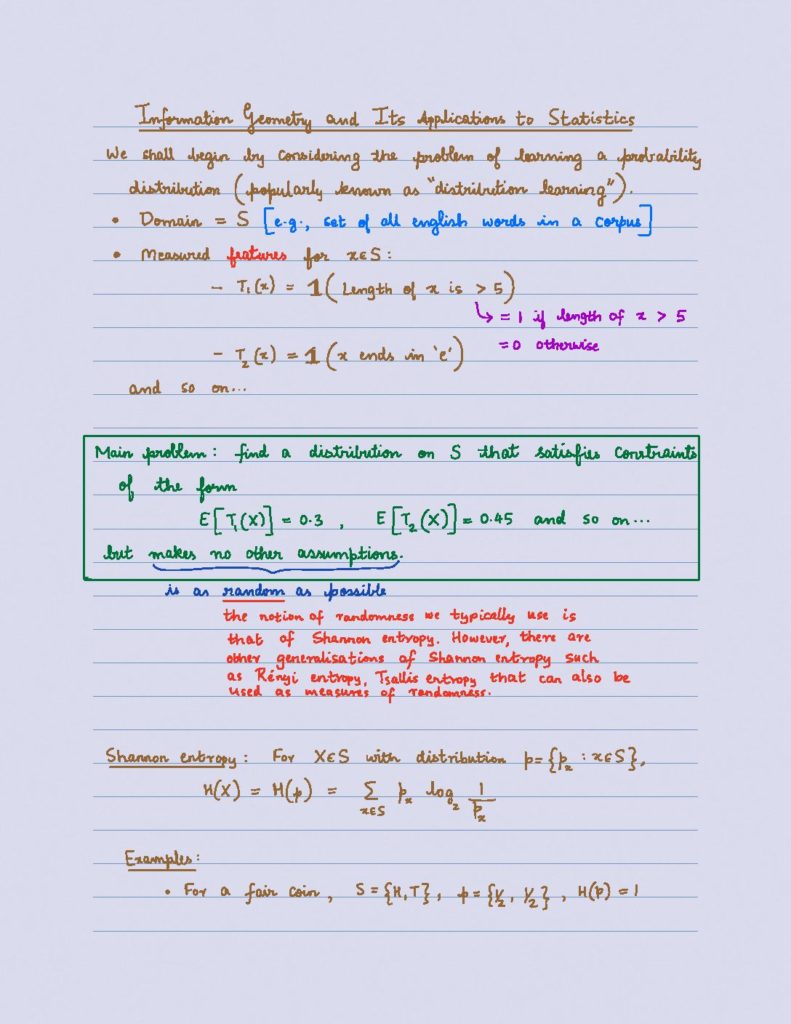 Information Geometry and Its Applications to Statistics
We shall begin by considering the problem of learning a probability
distribution (popularly known as "distribution learning").
• Domain = S [e.g., set of all english words in a corpus]
• Measured features for x∈S:
– T₁(x) = 𝟏(Length of x is > 5)
↳ = 1 if length of x > 5
= 0 otherwise
– T₂(x) = 𝟏(x ends in 'e')
and so on...
Main problem: find a distribution on S that satisfies constraints
of the form
E[T₁(X)] = 0.3 , E[T₂(X)] = 0.45 and so on...
but makes no other assumptions.
is as random as possible
the notion of randomness we typically use is
that of Shannon entropy. However, there are
other generalisations of Shannon entropy such
as Rényi entropy, Tsallis entropy that can also be
used as measures of randomness.
Shannon entropy: For X∈S with distribution p={pₓ : x∈S},
H(X) = H(p) = ∑_{x∈S} pₓ log₂ 1/pₓ
Examples:
• For a fair coin, S={H,T}, p={1/2, 1/2}, H(p)=1